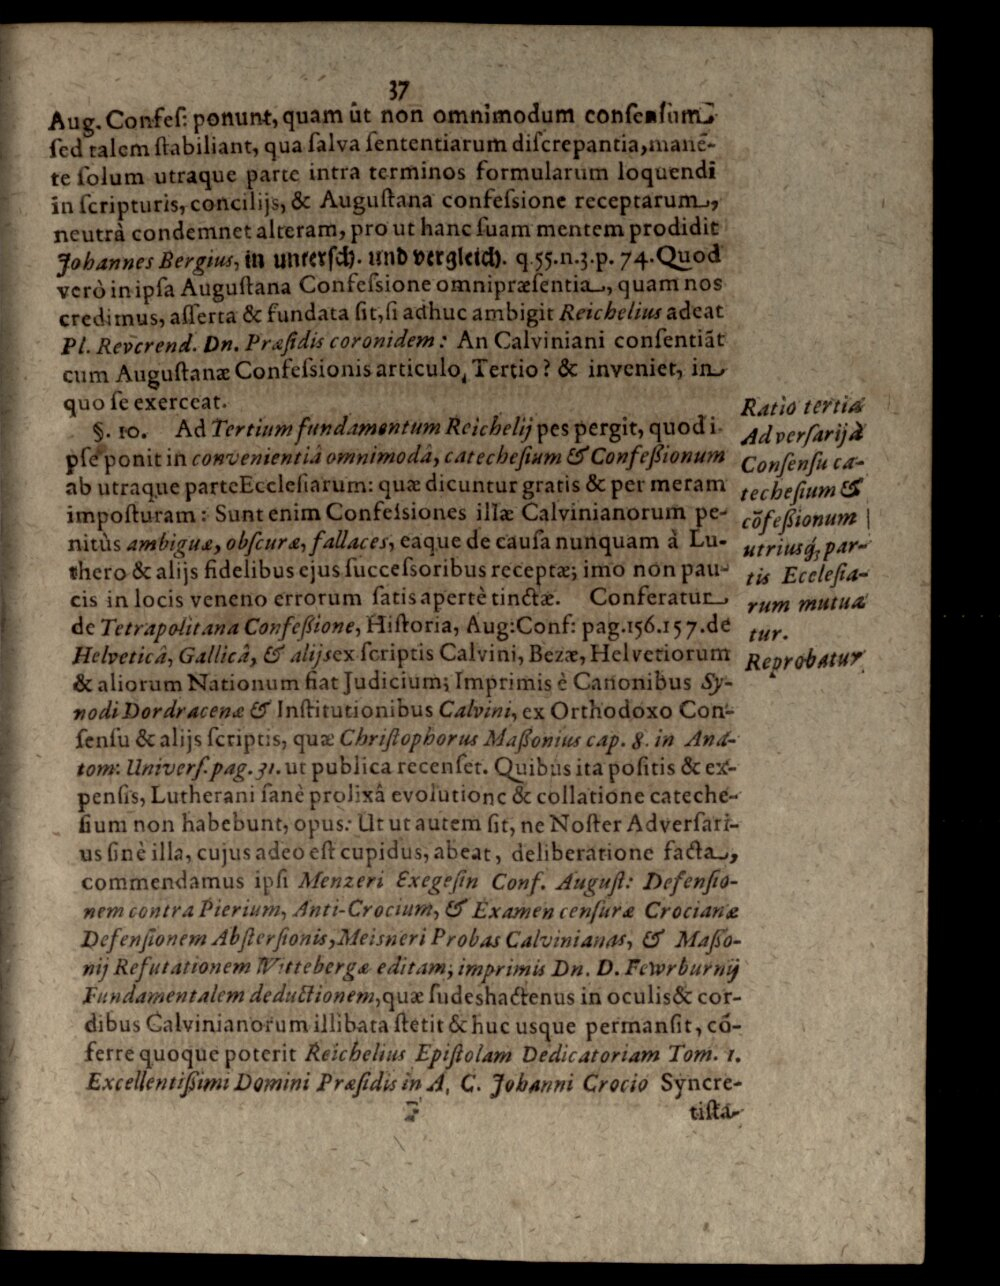 37
Aug. Confeſ: ponunt, quam ût non omnimodum conſenſum
ſed talem ſtabiliant, qua ſalva ſententiarum diſcrepantia, manē-
te ſolum utraque parte intra terminos formularum loquendi
in ſcripturis, concilijs, & Auguſtana confeſsione receptarum,
neutrà condemnet alteram, pro ut hanc ſuam mentem prodidit
Johannes Bergius, in unterſch. und vergleich. q. 55. n. 3. p. 74. Quod
verò in ipſa Auguſtana Confeſsione omnipræſentia, quam nos
credimus, aſſerta & fundata ſit, ſi adhuc ambigit Reichelius adeat
Pl. Reverend. Dn. Præſidis coronidem: An Calviniani conſentiāt
cum Auguſtanæ Confeſsionis articulo, Tertio? & inveniet, in
quo ſe exerceat.
§. 10. Ad Tertium fundamentum Reichelij pes pergit, quod i-
pſe ponit in convenientiâ omnimodâ, catecheſium & Confeßionum
ab utraque parte Eccleſiarum: quæ dicuntur gratis & per meram
impoſturam: Sunt enim Confeſsiones illæ Calvinianorum pe-
nitùs ambiguæ, obſcuræ, fallaces, eaque de cauſa nunquam à Lu-
thero & alijs fidelibus ejus ſucceſsoribus receptæ; imo non pau-
cis in locis veneno errorum ſatis apertè tinctæ. Conferatur
de Tetrapolitana Confeßione, Hiſtoria, Aug: Conf: pag. 156. 157. de
Helveticâ, Gallicâ, & alijs ex ſcriptis Calvini, Bezæ, Helvetiorum
& aliorum Nationum fiat Judicium; Imprimis è Canonibus Sy-
nodi Dordracenæ & Inſtitutionibus Calvini, ex Orthodoxo Con-
ſenſu & alijs ſcriptis, quæ Chriſtophorus Maßonius cap. 8. in Ana-
tom: Univerſ. pag. 31. ut publica recenſet. Quibus ita poſitis & ex-
penſis, Lutherani ſanè prolixâ evolutione & collatione cateche-
ſium non habebunt, opus: Ut ut autem ſit, ne Noſter Adverſari-
us ſinè illa, cujus adeo eſt cupidus, abeat, deliberatione facta,
commendamus ipſi Menzeri Exegeſin Conf. Auguſt: Defenſio-
nem contra Pierium, Anti-Crocium, & Examen cenſuræ Crocianæ
Defenſionem Abſterſionis, Meisneri Probas Calvinianas, & Maßo-
nij Refutationem Wittebergæ editam; imprimis Dn. D. Fewrburnij
Fundamentalem deductionem, quæ ſudes hactenus in oculis & cor-
dibus Calvinianorum illibata ſtetit & huc usque permanſit, cō-
ferre quoque poterit Reichelius Epiſtolam Dedicatoriam Tom. 1.
Excellentißimi Domini Præſidis in A. C. Johanni Crocio Syncre-
F tiſta-
Ratio tertia
Adverſarij à
Conſenſu ca-
techeſium &
cōfeßionum
utriusq́; par-
tis Eccleſia-
rum mutua
tur.
Reprobatur